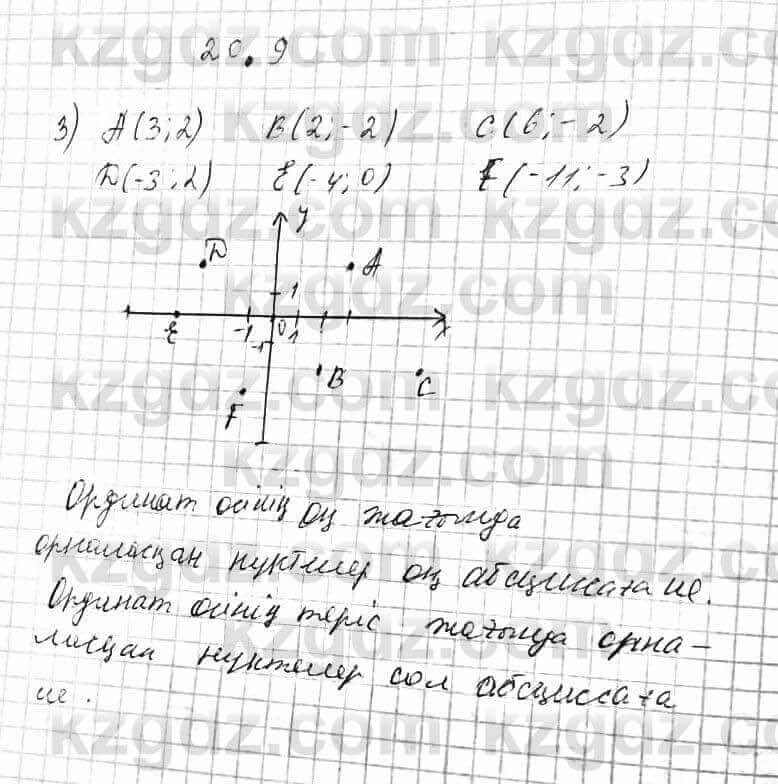 20.9
3) A(3;2) B(2;-2) C(6;-2)
D(-3;2) E(-4;0) F(-11;-3)
y
D A
1
E -1 0 1 x
-1
B C
F
Ординат осінің оң жағында
орналасқан нүктелер оң абсциссаға ие.
Ординат осінің теріс жағында орна-
ласқан нүктелер сол абсциссаға
ие.
kzgdz.com